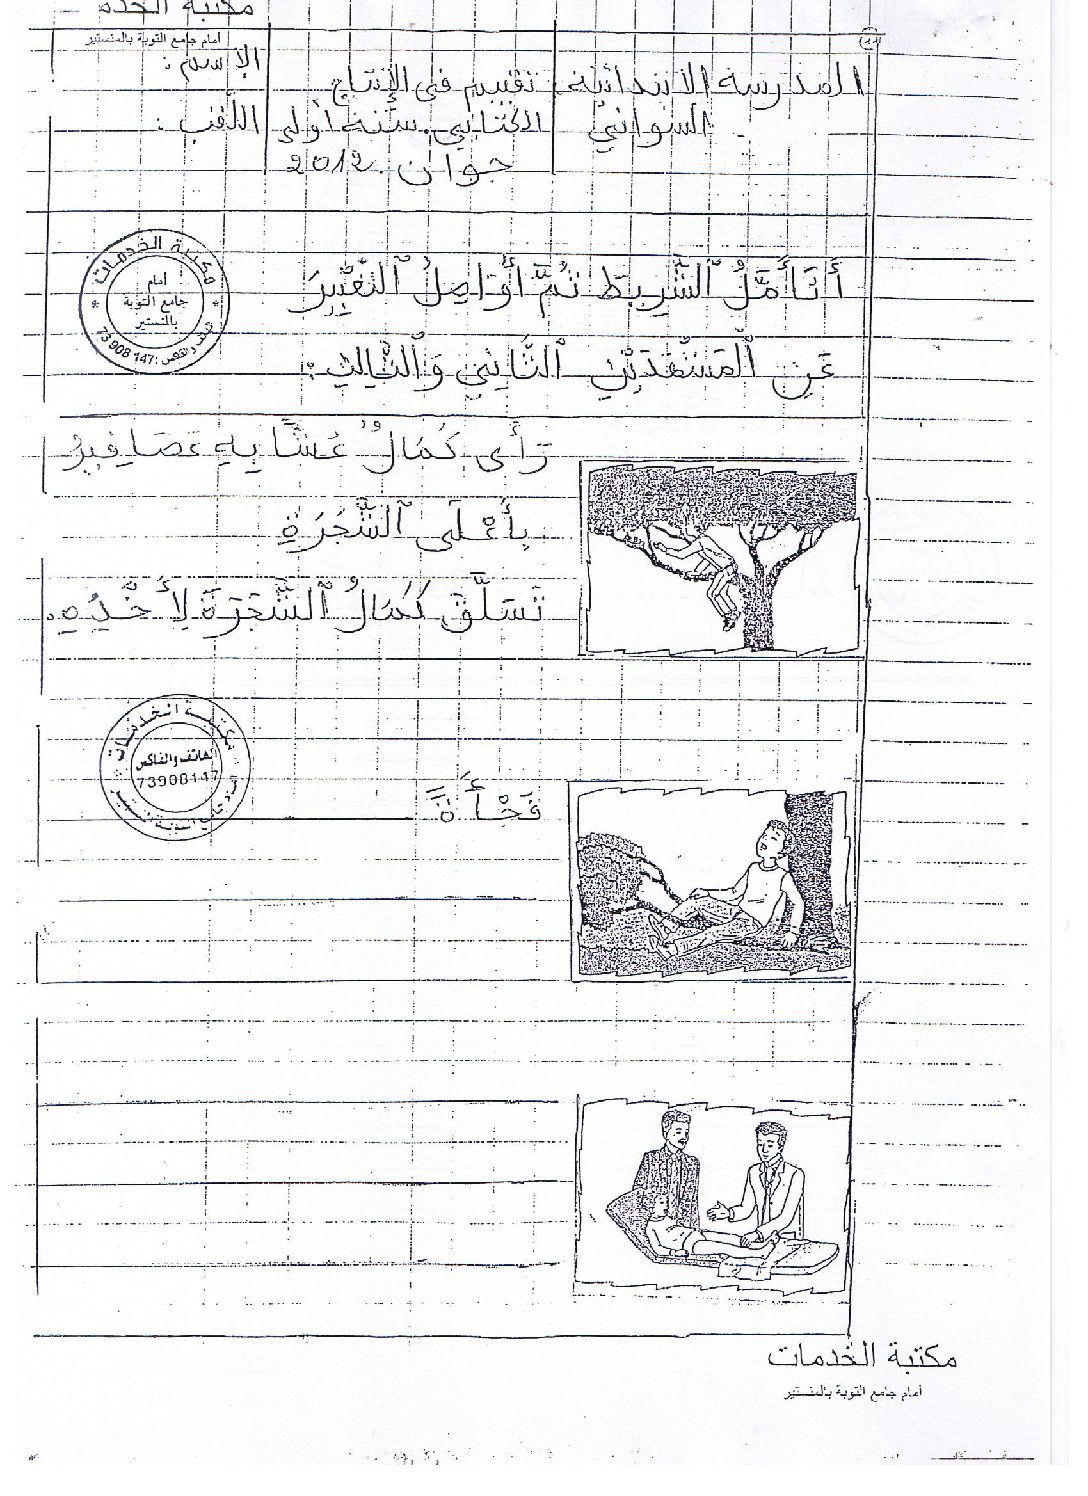 مكتبة الخدم
أمام جامع التوبة بالمنستير
المدرسة الابتدائية
السواني
تقييم في الإنتاج
الكتابي. سنة أولى
جوان 2012
الإسم :
اللقب :
أَتَأَمَّلُ ٱلشَّرِيطَ ثُمَّ أُوَاصِلُ ٱلتَّعْبِيرَ
عَنِ ٱلْمَشْهَدَيْنِ ٱلثَّانِي وَٱلثَّالِثِ:
مكتبة الخدمات
أمام
جامع التوبة
بالمنستير
73 908 147
رَأَى كَمَالُ عُشًّا بِهِ عَصَافِيرُ
بِأَعْلَى ٱلشَّجَرَةِ
تَسَلَّقَ كَمَالُ ٱلشَّجَرَةَ لِأَخْذِهِ.
مكتبة الخدمات
الهاتف والفاكس
73908147
فَجْأَةً
مكتبة الخدمات
أمام جامع التوبة بالمنستير